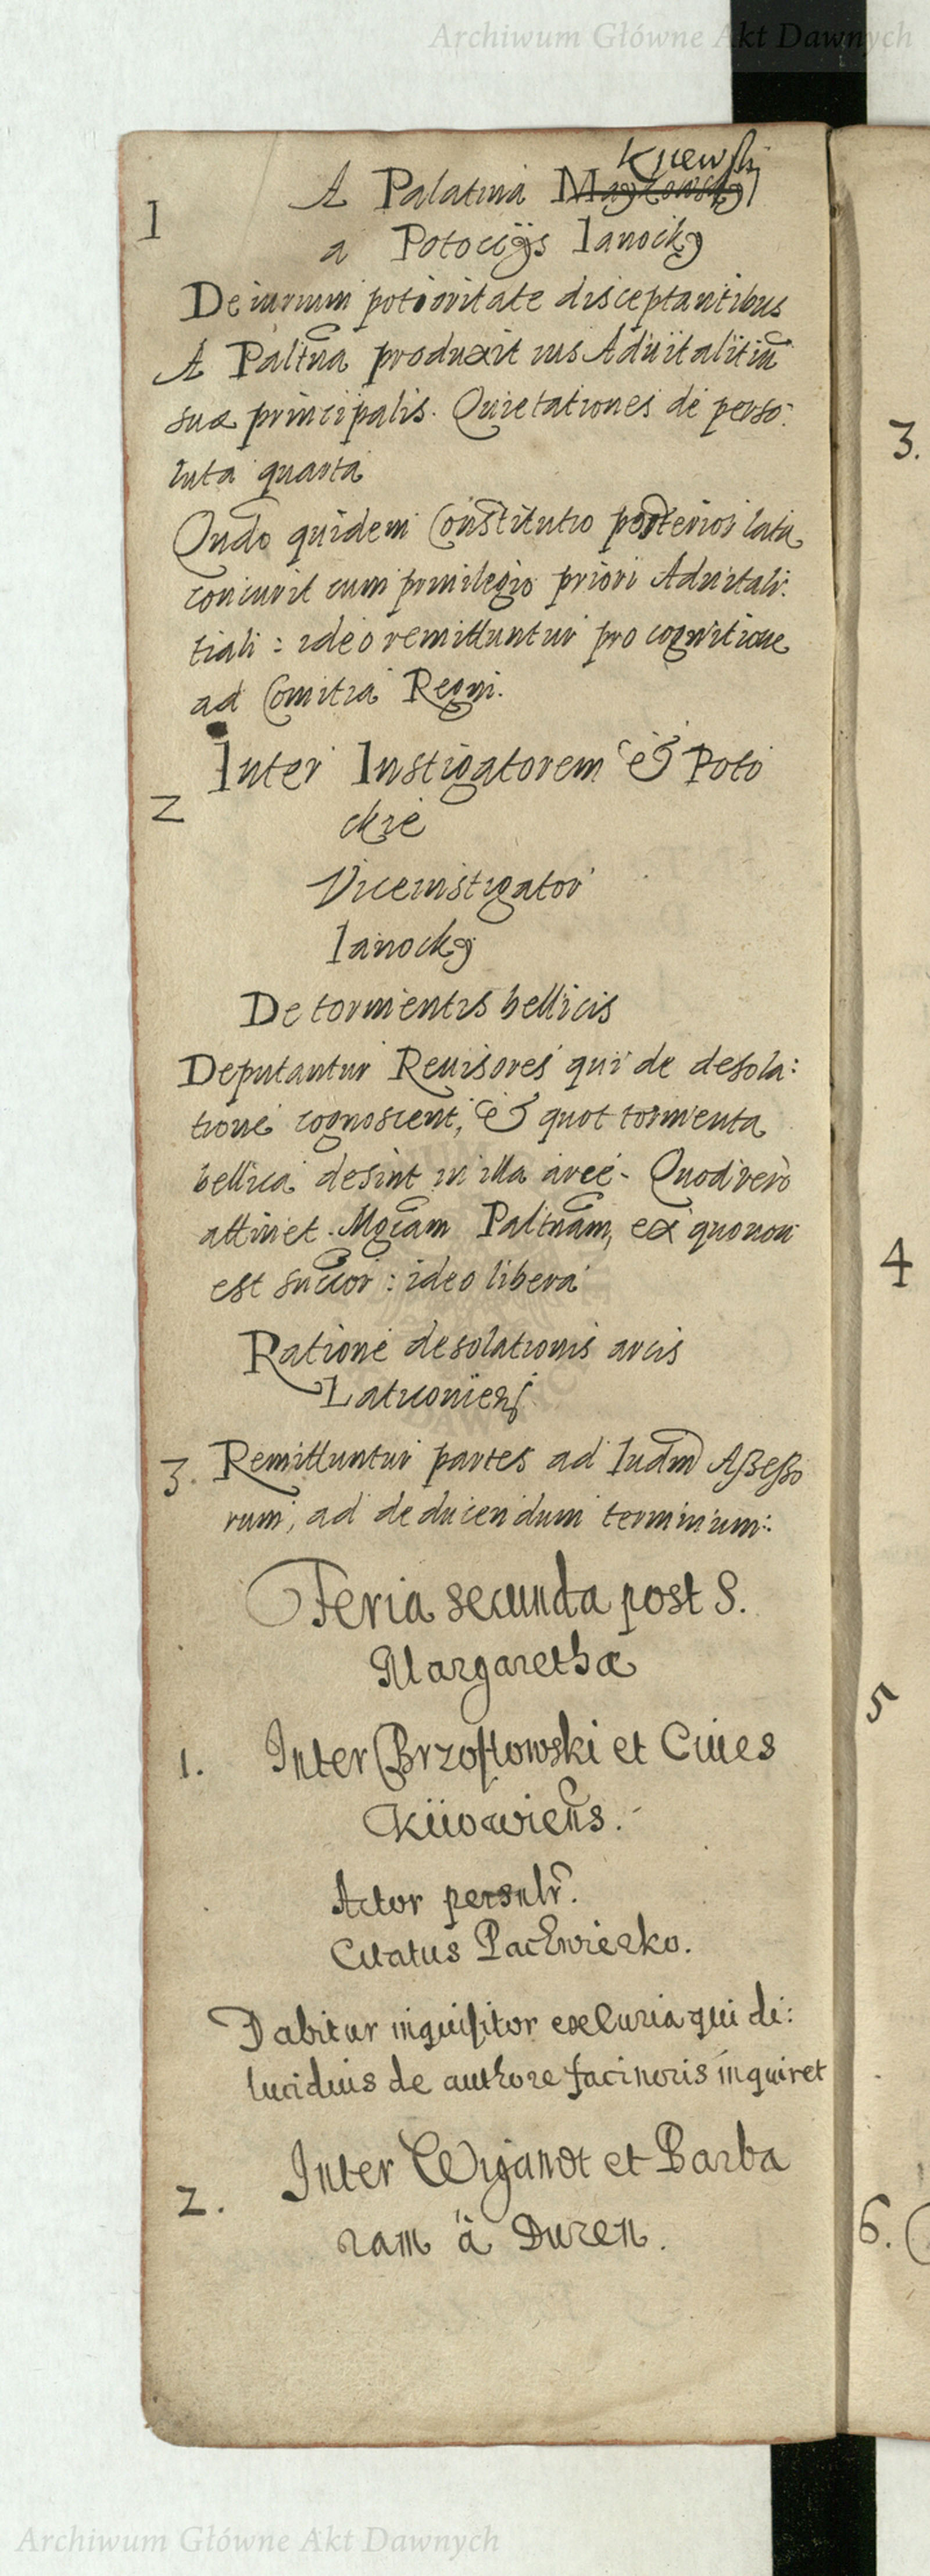 Archiwum Główne Akt Dawnych
Kijewski
1 A Palatina Mayzowskÿ
a Potocÿs Ianockÿ
De iurium potioritate disceptantibus
A Paltna produxit ius Aduitalitiu
suæ principalis. Quietationes de perso:
luta quarta
Qudo quidem Constitutio posterior lata
concurit cum priuilegio priori Aduitali:
tiali: ideo remittuntur pro cognitione
ad Comitia Regni.
2 Inter Instigatorem & Poto
ckie
Viceinstigator
Ianockÿ
De tormentis bellicis
Deputantur Reuisores qui de desola:
tione cognoscent, & quot tormenta
bellica desint in illa arce. Quod vero
attinet Mgcam Paltnam, ex quo non
est succor: ideo libera
Ratione desolationis arcis
3. Remittuntur partes ad Iudm Assesso
rum, ad deducendum terminum:
Feria secunda post S.
Margarethæ
1. Inter Brzostowski et Ciues
Kiiowiens.
Actor persnlr.
Citatus Pachwiezko.
Dabitur inquisitor ex Curia qui di:
lucidius de authore facinoris inquiret
2. Inter Wigandt et Barba
ram à Duren.
3.
4
5
6.
Archiwum Główne Akt Dawnych